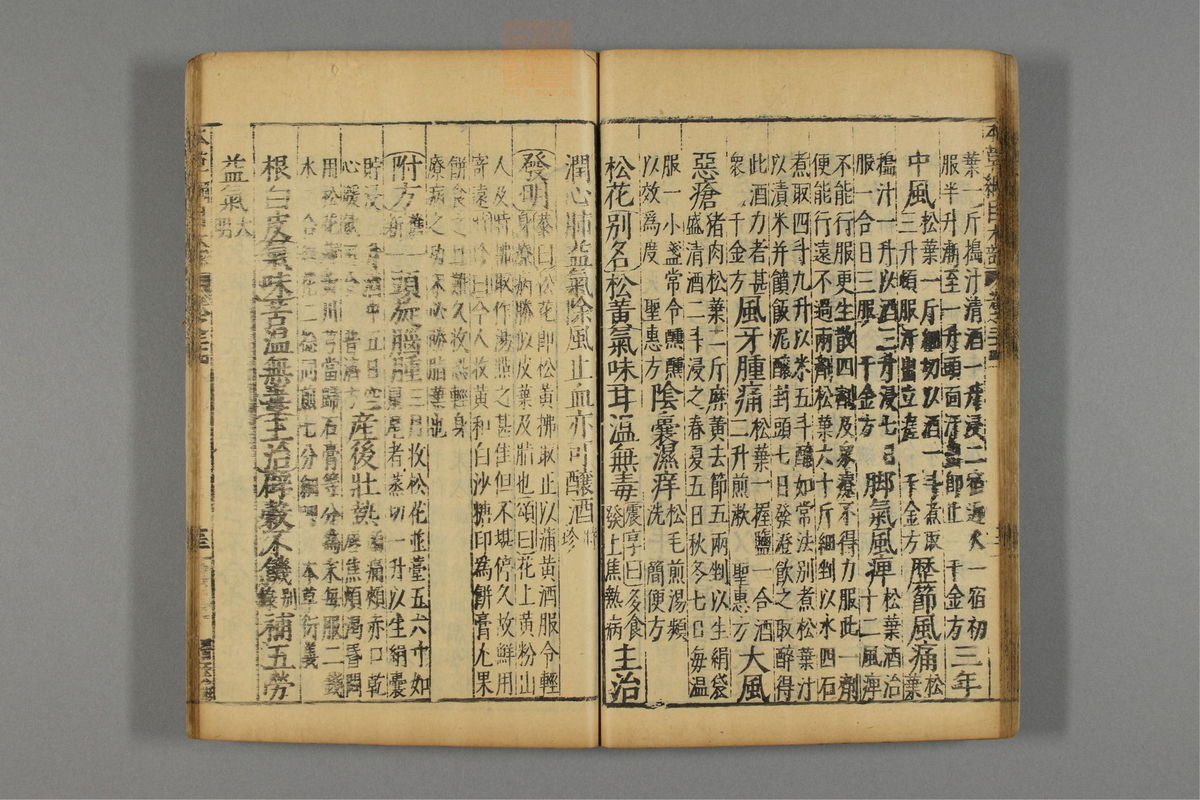 葉一斤搗汁清酒一浸二宿近火一宿初
服半升漸至一升頭面汗出即止千金方三年
中風松葉一斤細切以酒一斗煮取
三升頓服汗出立瘥千金方歷節風痛松葉
搗汁一升以酒三升浸七日
服一合日三服千金方脚氣風痺松葉酒治
十二風痺
不能行服更生散四劑及眾療不得力服此一劑
便能行遠不過兩劑松葉六十斤細剉以水四石
煮取四斗九升以米五斗釀如常法別煮松葉汁
以漬米并饙飯泥釀封頭七日發澄飲之取醉得
此酒力者甚
衆千金方風牙腫痛松葉一握鹽一合酒
二升煎漱聖惠方大風
惡瘡豬肉松葉二斤麻黃去節五兩剉以生絹袋
盛清酒二斗浸之春夏五日秋冬七日每溫
服一小盞常令醺醺
以效爲度聖惠方陰囊濕痒松毛煎湯頻
洗簡便方
松花別名松黃氣味甘溫無毒震亨曰多食
發上焦熱病主治
潤心肺益氣除風止血亦可釀酒時珍
發明恭曰松花即松黃拂取正以蒲黃酒服令輕
身療病勝似皮葉及脂也頌曰花上黃粉山
人及時拂取作湯點之甚佳但不堪停久故鮮用
寄遠時珍曰今人收黃和白沙糖印為餅膏充果
餅食之且難久收恐輕身
療病之功未必勝脂葉也
附方舊一新一頭旋腦腫三月收松花并薹五六寸如
鼠尾者蒸切一升以生絹囊
貯浸三升酒中五日空
心暖飲五合普濟方產後壯熱頭痛頰赤口乾
唇焦煩渴昏悶
用松花蒲黃川芎當歸石膏等分為末每服二錢
水二合紅花二捻同煎七分細呷本草衍義
根白皮氣味苦溫無毒主治辟穀不饑別錄補五勞
益氣大明